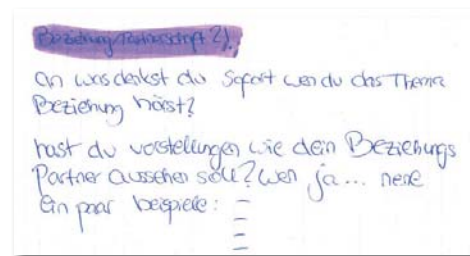 Beziehung/Partnerschaft 2).
An was denkst du Sofort wen du das Thema
Beziehung hörst?
hast du vorstellungen wie dein Beziehungs
Partner aussehen soll? wen ja... nene
Ein paar beispiele: –
–
–
–